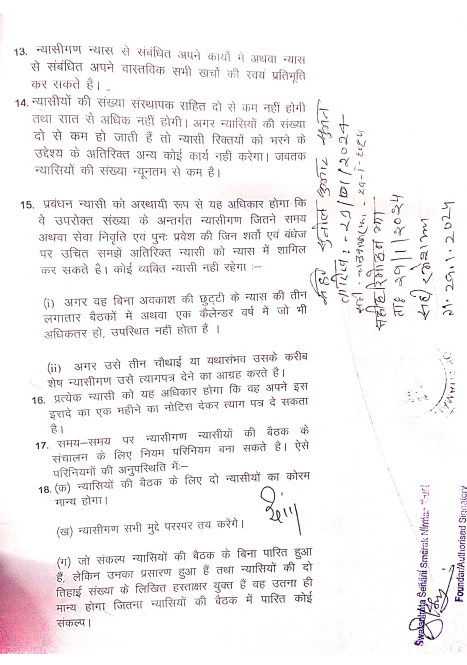 13. न्यासीगण न्यास से संबंधित अपने कार्यो में अथवा न्यास
से संबंधित अपने वास्तविक सभी खर्चो की स्वयं प्रतिमूर्ति
कर सकते है।
14. न्यासीयों की संख्या संस्थापक सहित दो से कम नहीं होगी
तथा सात से अधिक नहीं होगी। अगर न्यासियों की संख्या
दो से कम हो जाती हैं तो न्यासी रिक्तयों को भरने के
उद्देश्य के अतिरिक्त अन्य कोई कार्य नहीं करेगा। जबतक
न्यासियों की संख्या न्यूनतम से कम है।
15. प्रबंधन न्यासी को अस्थायी रूप से यह अधिकार होगा कि
वे उपरोक्त संख्या के अन्तर्गत न्यासीगण जितने समय
अथवा सेवा निवृति एवं पुनः प्रवेश की जिन शर्तो एवं बंधेज
पर उचित समझें अतिरिक्त न्यासी को न्यास में शामिल
कर सकते है। कोई व्यक्ति न्यासी नहीं रहेगा :–
(i) अगर वह बिना अवकाश की छुट्टी के न्यास की तीन
लगातार बैठकों में अथवा एक कैलेन्डर वर्ष में जो भी
अधिकतर हो, उपस्थित नहीं होता है ।
(ii) अगर उसे तीन चौथाई या यथासंभव उसके करीब
शेष न्यासीगण उसे त्यागपत्र देने का आग्रह करते है।
16. प्रत्येक न्यासी को यह अधिकार होगा कि वह अपने इस
इरादे का एक महीने का नोटिस देकर त्याग पत्र दे सकता
है।
17. समय–समय पर न्यासीगण न्यासीयों की बैठक के
संचालन के लिए नियम परिनियम बना सकते है। ऐसे
परिनियमों की अनुपस्थिति में:–
18. (क) न्यासियों की बैठक के लिए दो न्यासीयों का कोरम
मान्य होगा।
(ख) न्यासीगण सभी मुद्दे परस्पर तय करेगें।
(ग) जो संकल्प न्यासियों की बैठक के बिना पारित हुआ
हैं, लेकिन उनका प्रसारण हुआ हैं तथा न्यासियों की दो
तिहाई संख्या के लिखित हस्ताक्षर युक्त हैं वह उतना ही
मान्य होगा जितना न्यासियों की बैठक में पारित कोई
संकल्प।
29/01/2024
29-1-2024
ता० 29/1/2024
29.1.2024
Swatantrta Senani Smarak
Founder/Authorised Signatory